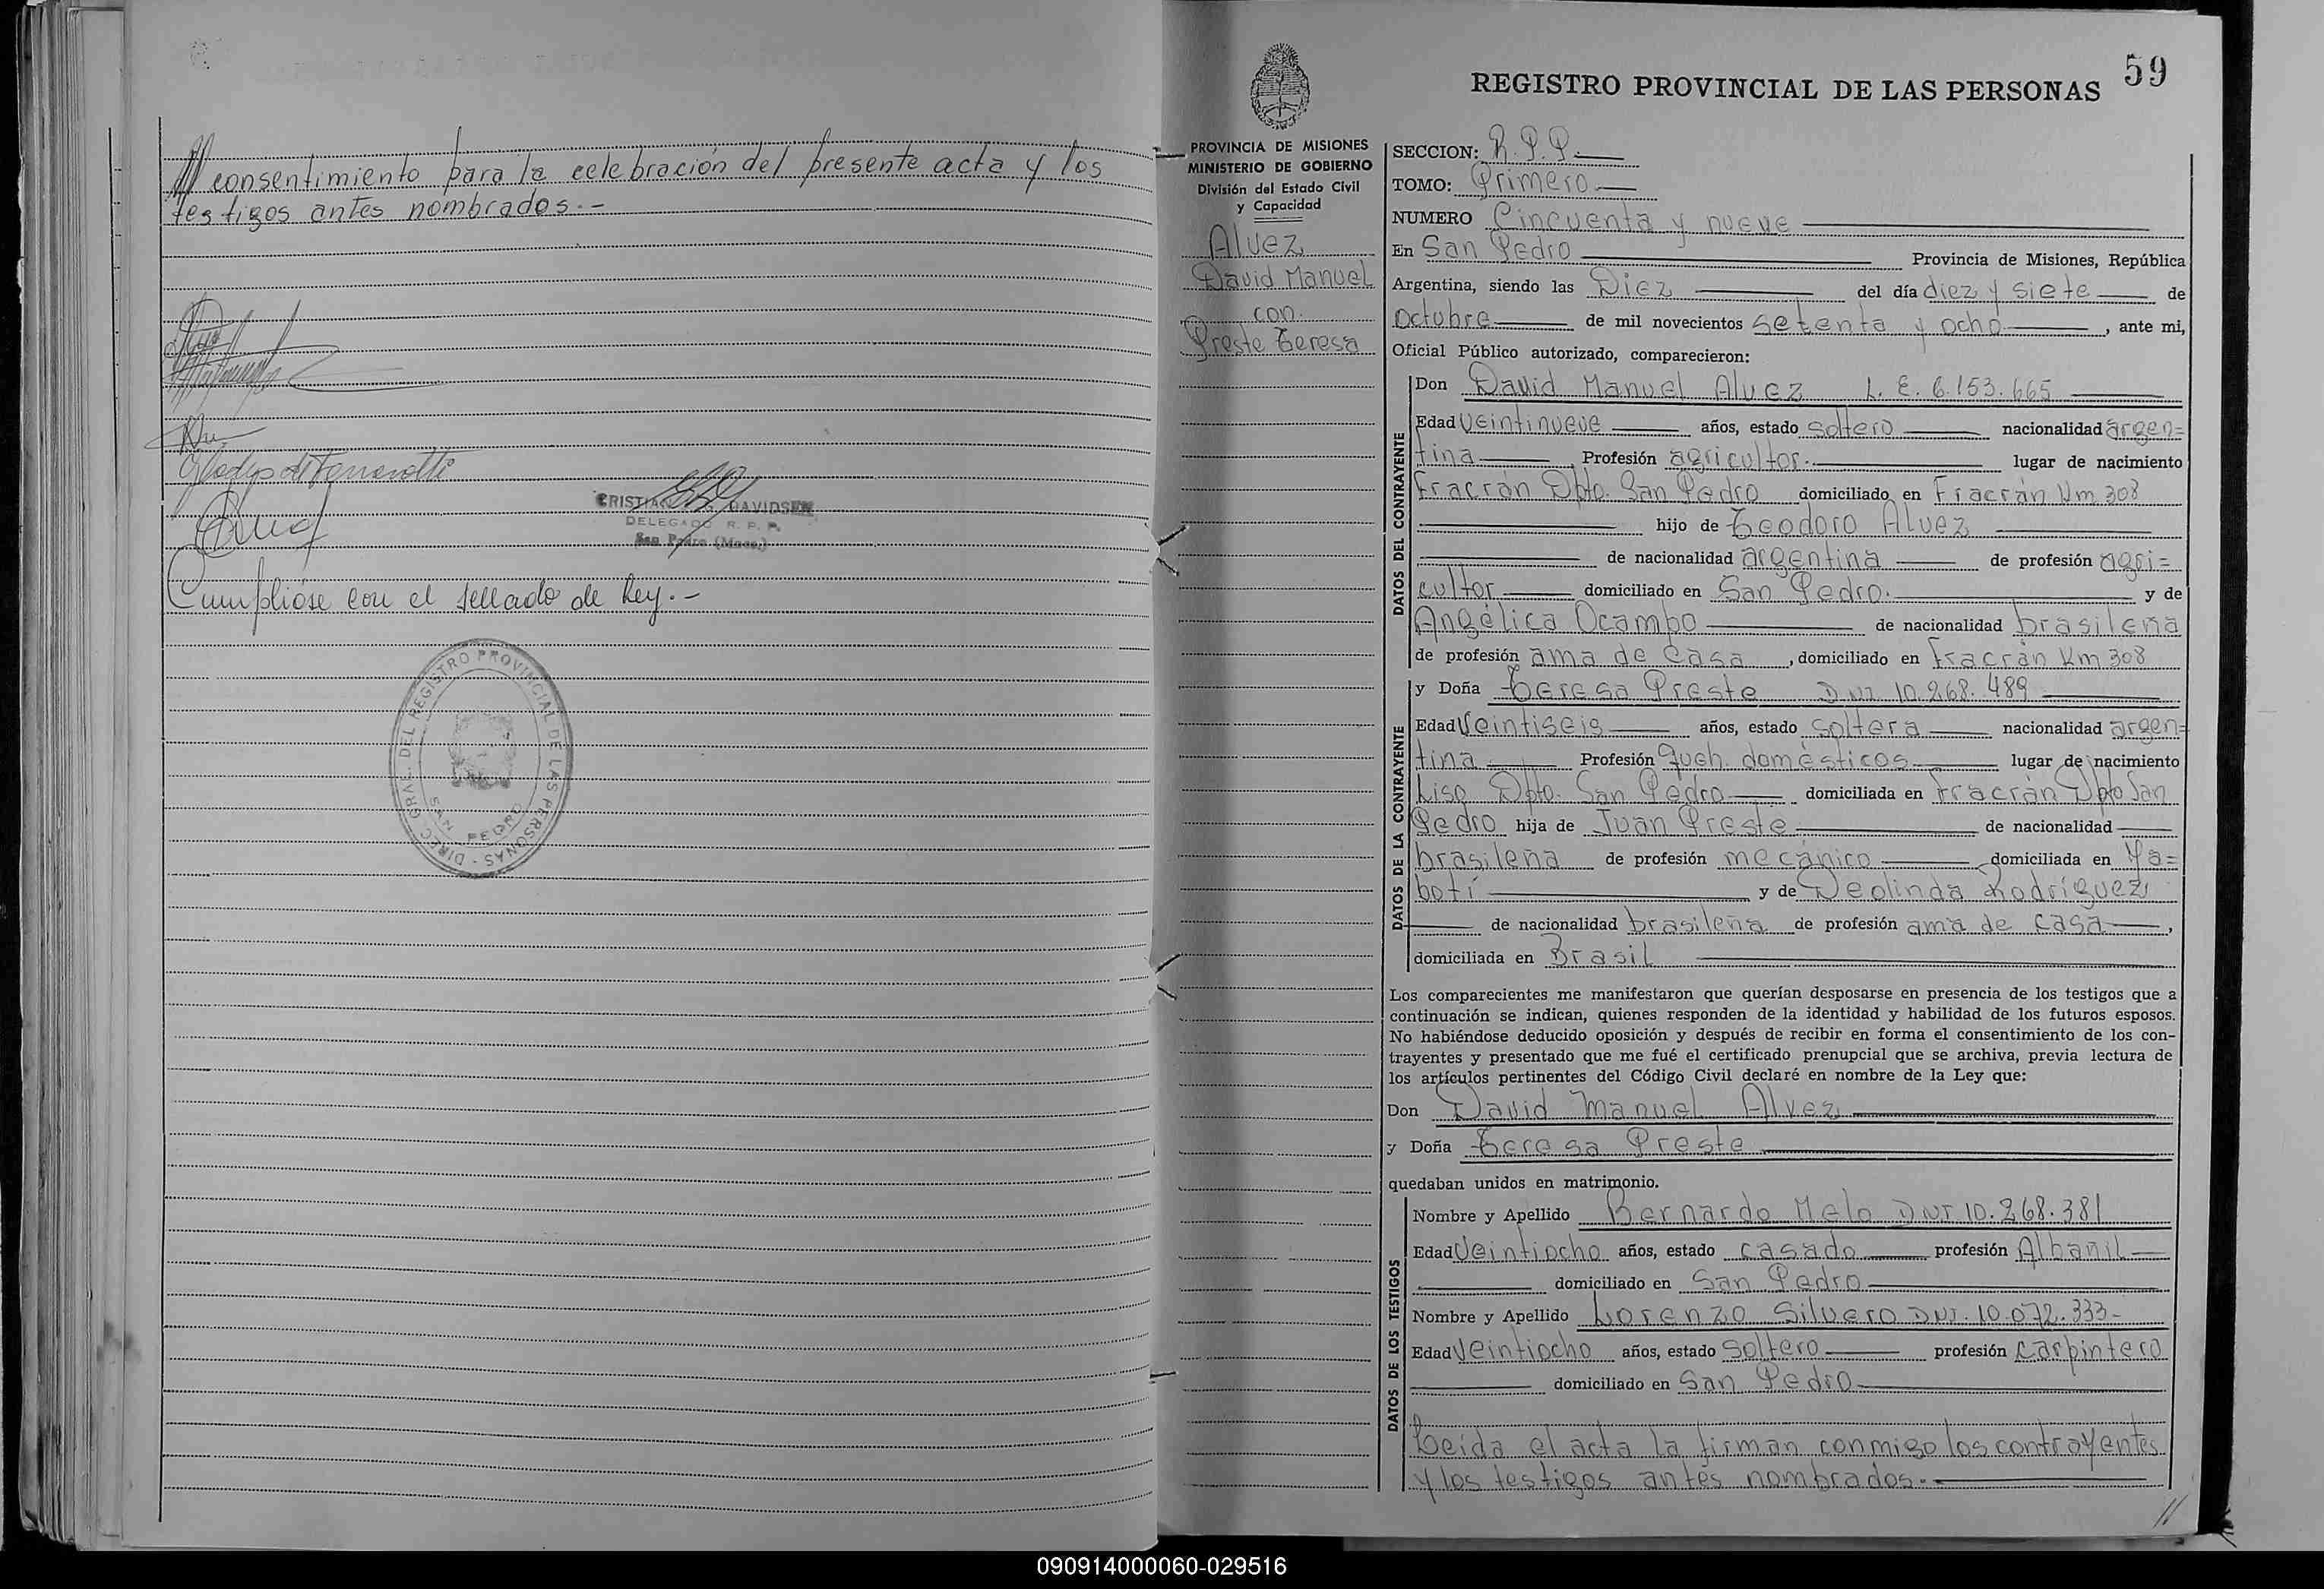 // consentimiento para la celebración del presente acta y los
testigos antes nombrados.-
Gladys de Ferranotti
CRISTIAN DAVIDSEN
DELEGADO R. P. P.
San Pedro (Mnes.)
Cumplióse con el sellado de Ley.-
DIREC. GRAL. DEL REGISTRO PROVINCIAL DE LAS PERSONAS -
SAN PEDRO
59
REGISTRO PROVINCIAL DE LAS PERSONAS
PROVINCIA DE MISIONES
MINISTERIO DE GOBIERNO
División del Estado Civil
y Capacidad
Alvez
David Manuel
con
Preste Teresa
SECCION: R.P.P.
TOMO: Primero
NUMERO Cincuenta y nueve
En San Pedro Provincia de Misiones, República
Argentina, siendo las Diez del día diez y siete de
octubre de mil novecientos setenta y ocho, ante mi,
Oficial Público autorizado, comparecieron:
DATOS DEL CONTRAYENTE
Don David Manuel Alvez L. E. 6.153.665
Edad veintinueve años, estado soltero nacionalidad argen=
tina Profesión agricultor. lugar de nacimiento
Fracrán Dpto. San Pedro domiciliado en Fracrán Km 308
hijo de Teodoro Alvez
de nacionalidad argentina de profesión agri=
cultor domiciliado en San Pedro. y de
Angélica Ocampo de nacionalidad brasileña
de profesión ama de casa, domiciliado en Fracrán Km 308
DATOS DE LA CONTRAYENTE
y Doña Teresa Preste DNI. 10.268.489
Edad Veintiseis años, estado soltera nacionalidad argen=
tina Profesión Queh. domésticos lugar de nacimiento
Liso Dpto. San Pedro domiciliada en Fracrán Dpto San
Pedro hija de Juan Preste de nacionalidad
brasileña de profesión mecánico domiciliada en Ya=
botí y de Deolinda Rodríguez
de nacionalidad brasileña de profesión ama de casa,
domiciliada en Brasil
Los comparecientes me manifestaron que querían desposarse en presencia de los testigos que a
continuación se indican, quienes responden de la identidad y habilidad de los futuros esposos.
No habiéndose deducido oposición y después de recibir en forma el consentimiento de los con-
trayentes y presentado que me fué el certificado prenupcial que se archiva, previa lectura de
los artículos pertinentes del Código Civil declaré en nombre de la Ley que:
Don David Manuel Alvez
y Doña Teresa Preste
quedaban unidos en matrimonio.
DATOS DE LOS TESTIGOS
Nombre y Apellido Bernardo Melo DNI 10.268.381
Edad Veintiocho años, estado casado profesión Albañil
domiciliado en San Pedro
Nombre y Apellido Lorenzo Silvero DNI. 10.072.333-
Edad Veintiocho años, estado soltero profesión carpintero
domiciliado en San Pedro
Leída el acta la firman conmigo los contrayentes
y los testigos antes nombrados.-
//
090914000060-029516